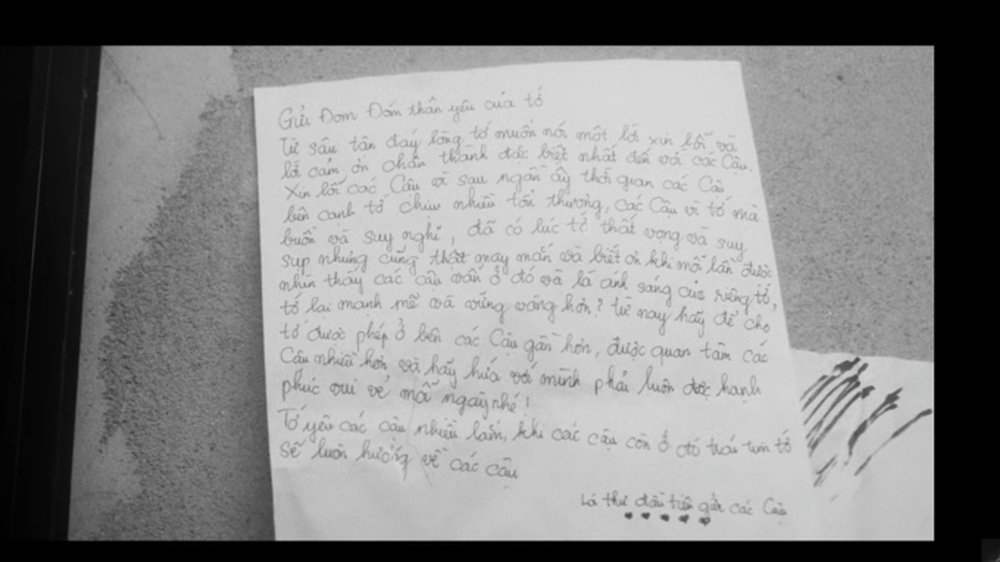 Gửi Đom Đóm thân yêu của tớ
Từ sâu tân đáy lòng tớ muốn nói một lời xin lỗi và
lời cảm ơn chân thành đặc biệt nhất đến với các Cậu.
Xin lỗi các Cậu vì sau ngần ấy thời gian các Cậu
bên cạnh tớ chịu nhiều tổn thương, các Cậu vì tớ mà
buồn và suy nghĩ, đã có lúc tớ thất vọng và suy
sụp nhưng cũng thật may mắn và biết ơn khi mỗi lần được
nhìn thấy các cậu vẫn ở đó và là ánh sáng của riêng tớ,
tớ lại mạnh mẽ và vững vàng hơn? từ nay hãy để cho
tớ được phép ở bên các Cậu gần hơn, được quan tâm các
Cậu nhiều hơn và hãy hứa với mình phải luôn được hạnh
phúc vui vẻ mỗi ngày nhé!
Tớ yêu các cậu nhiều lắm, khi các cậu còn ở đó trái tim tớ
sẽ luôn hướng về các cậu
Lá thư đầu tiên gửi các Cậu